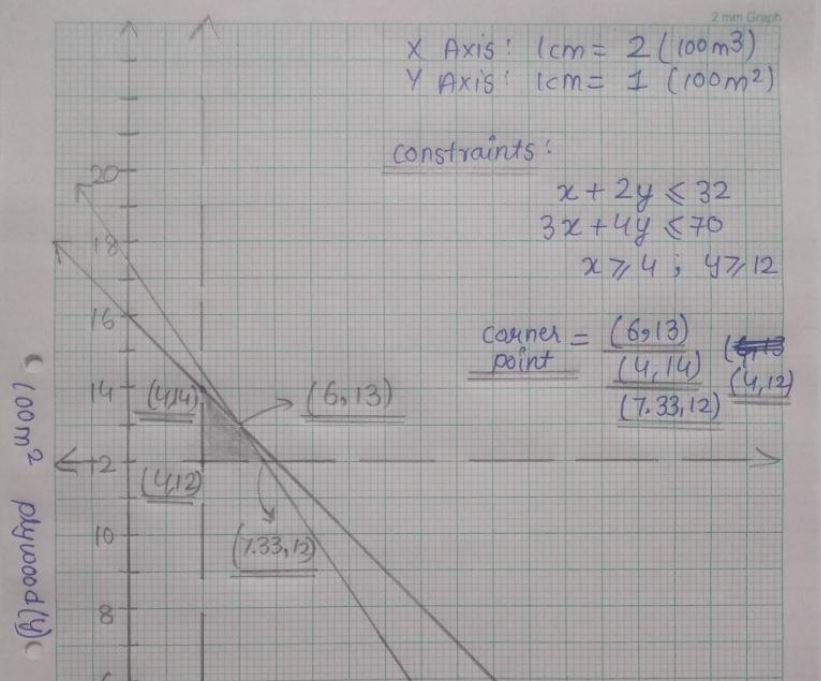 2 mm Graph
X Axis: 1cm = 2 (100m3)
Y Axis: 1cm = 1 (100m2)
constraints:
x + 2y ≤ 32
3x + 4y ≤ 70
x ≥ 4 ; y ≥ 12
corner point = (6,13)
(4,14)
(7.33,12)
(4,12)
20
18
16
14
(4,14)
(6,13)
12
(4,12)
10
(7.33,12)
8
6
100m2 plywood (y)